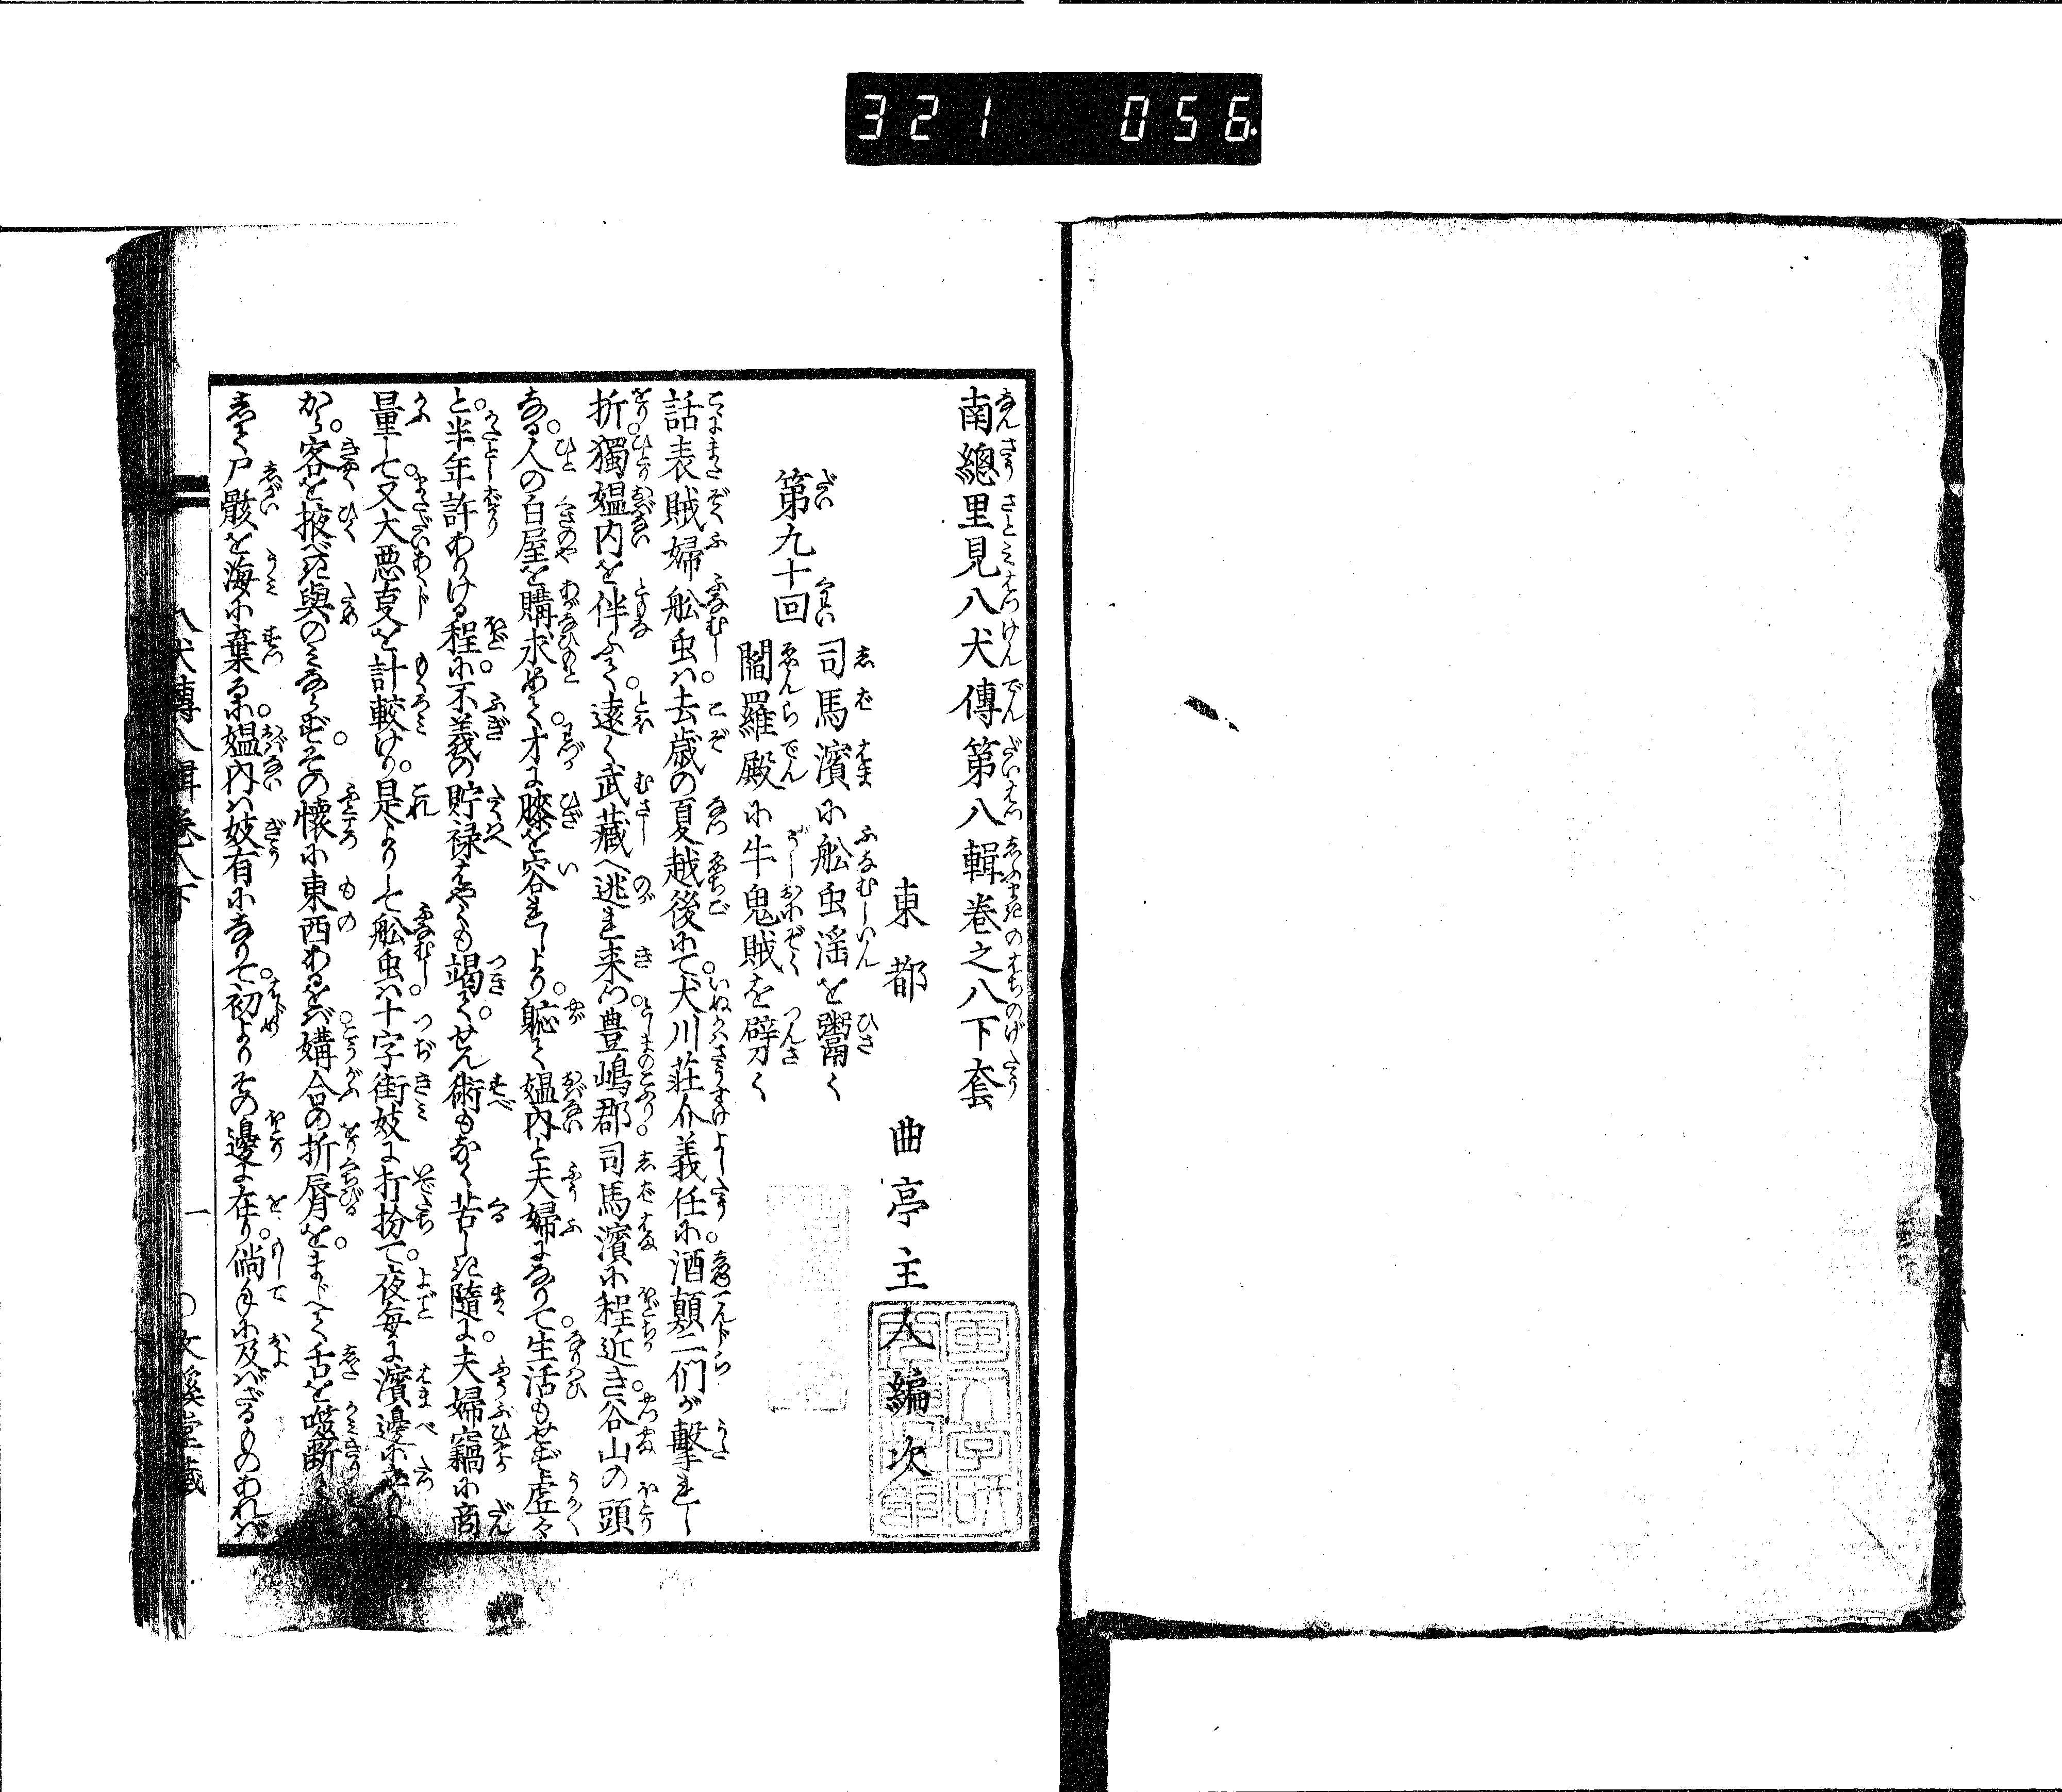 321 056
南總里見八犬傳第八輯卷之八下套
東都 曲亭主人編次
第九十回
司馬濱に舩虫淫を鬻く
閻羅殿に牛鬼賊を劈く
話表賊婦舩虫は去歳の夏越後にて。犬川莊介義任に酒顛二們が撃れし
折。獨媼内を伴ふて。遠く武藏へ逃れ来つ。豊嶋郡司馬濱に程近き。谷山の頭
なる。人の白屋を購求めて。才に膝を容れしより。恥て媼内と夫婦になりて。生活もせず虚々
と。半年許ありける程に。不義の貯禄はやくも竭て。せん術もなく苦しき隨に。夫婦竊に商
量して。又大悪事を計較けり。是よりして舩虫は。十字街妓に打扮て。夜毎に濱邊に
から。客を掖べき與のみならず。その懐に東西あるをば。媾合の折唇を。まじへて舌を噬断
して。尸骸を海に棄るに。媼内は妓有になりて。初よりその邊に在り。倘手に及ばざるものあれば
八犬傳八輯卷八下
一
○文溪堂藏